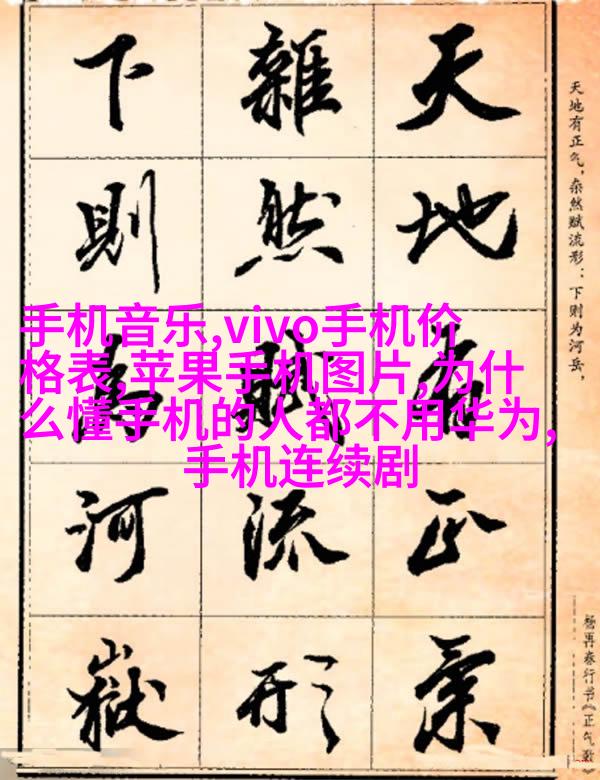 天地有正氣
雜然賦流形
下則為河嶽
天地有正气，杂然赋流形：下则为河岳，
杨再春行书《正气歌》
手机音乐,vivo手机价
格表,苹果手机图片,为什
么懂手机的人都不用华为,
手机连续剧